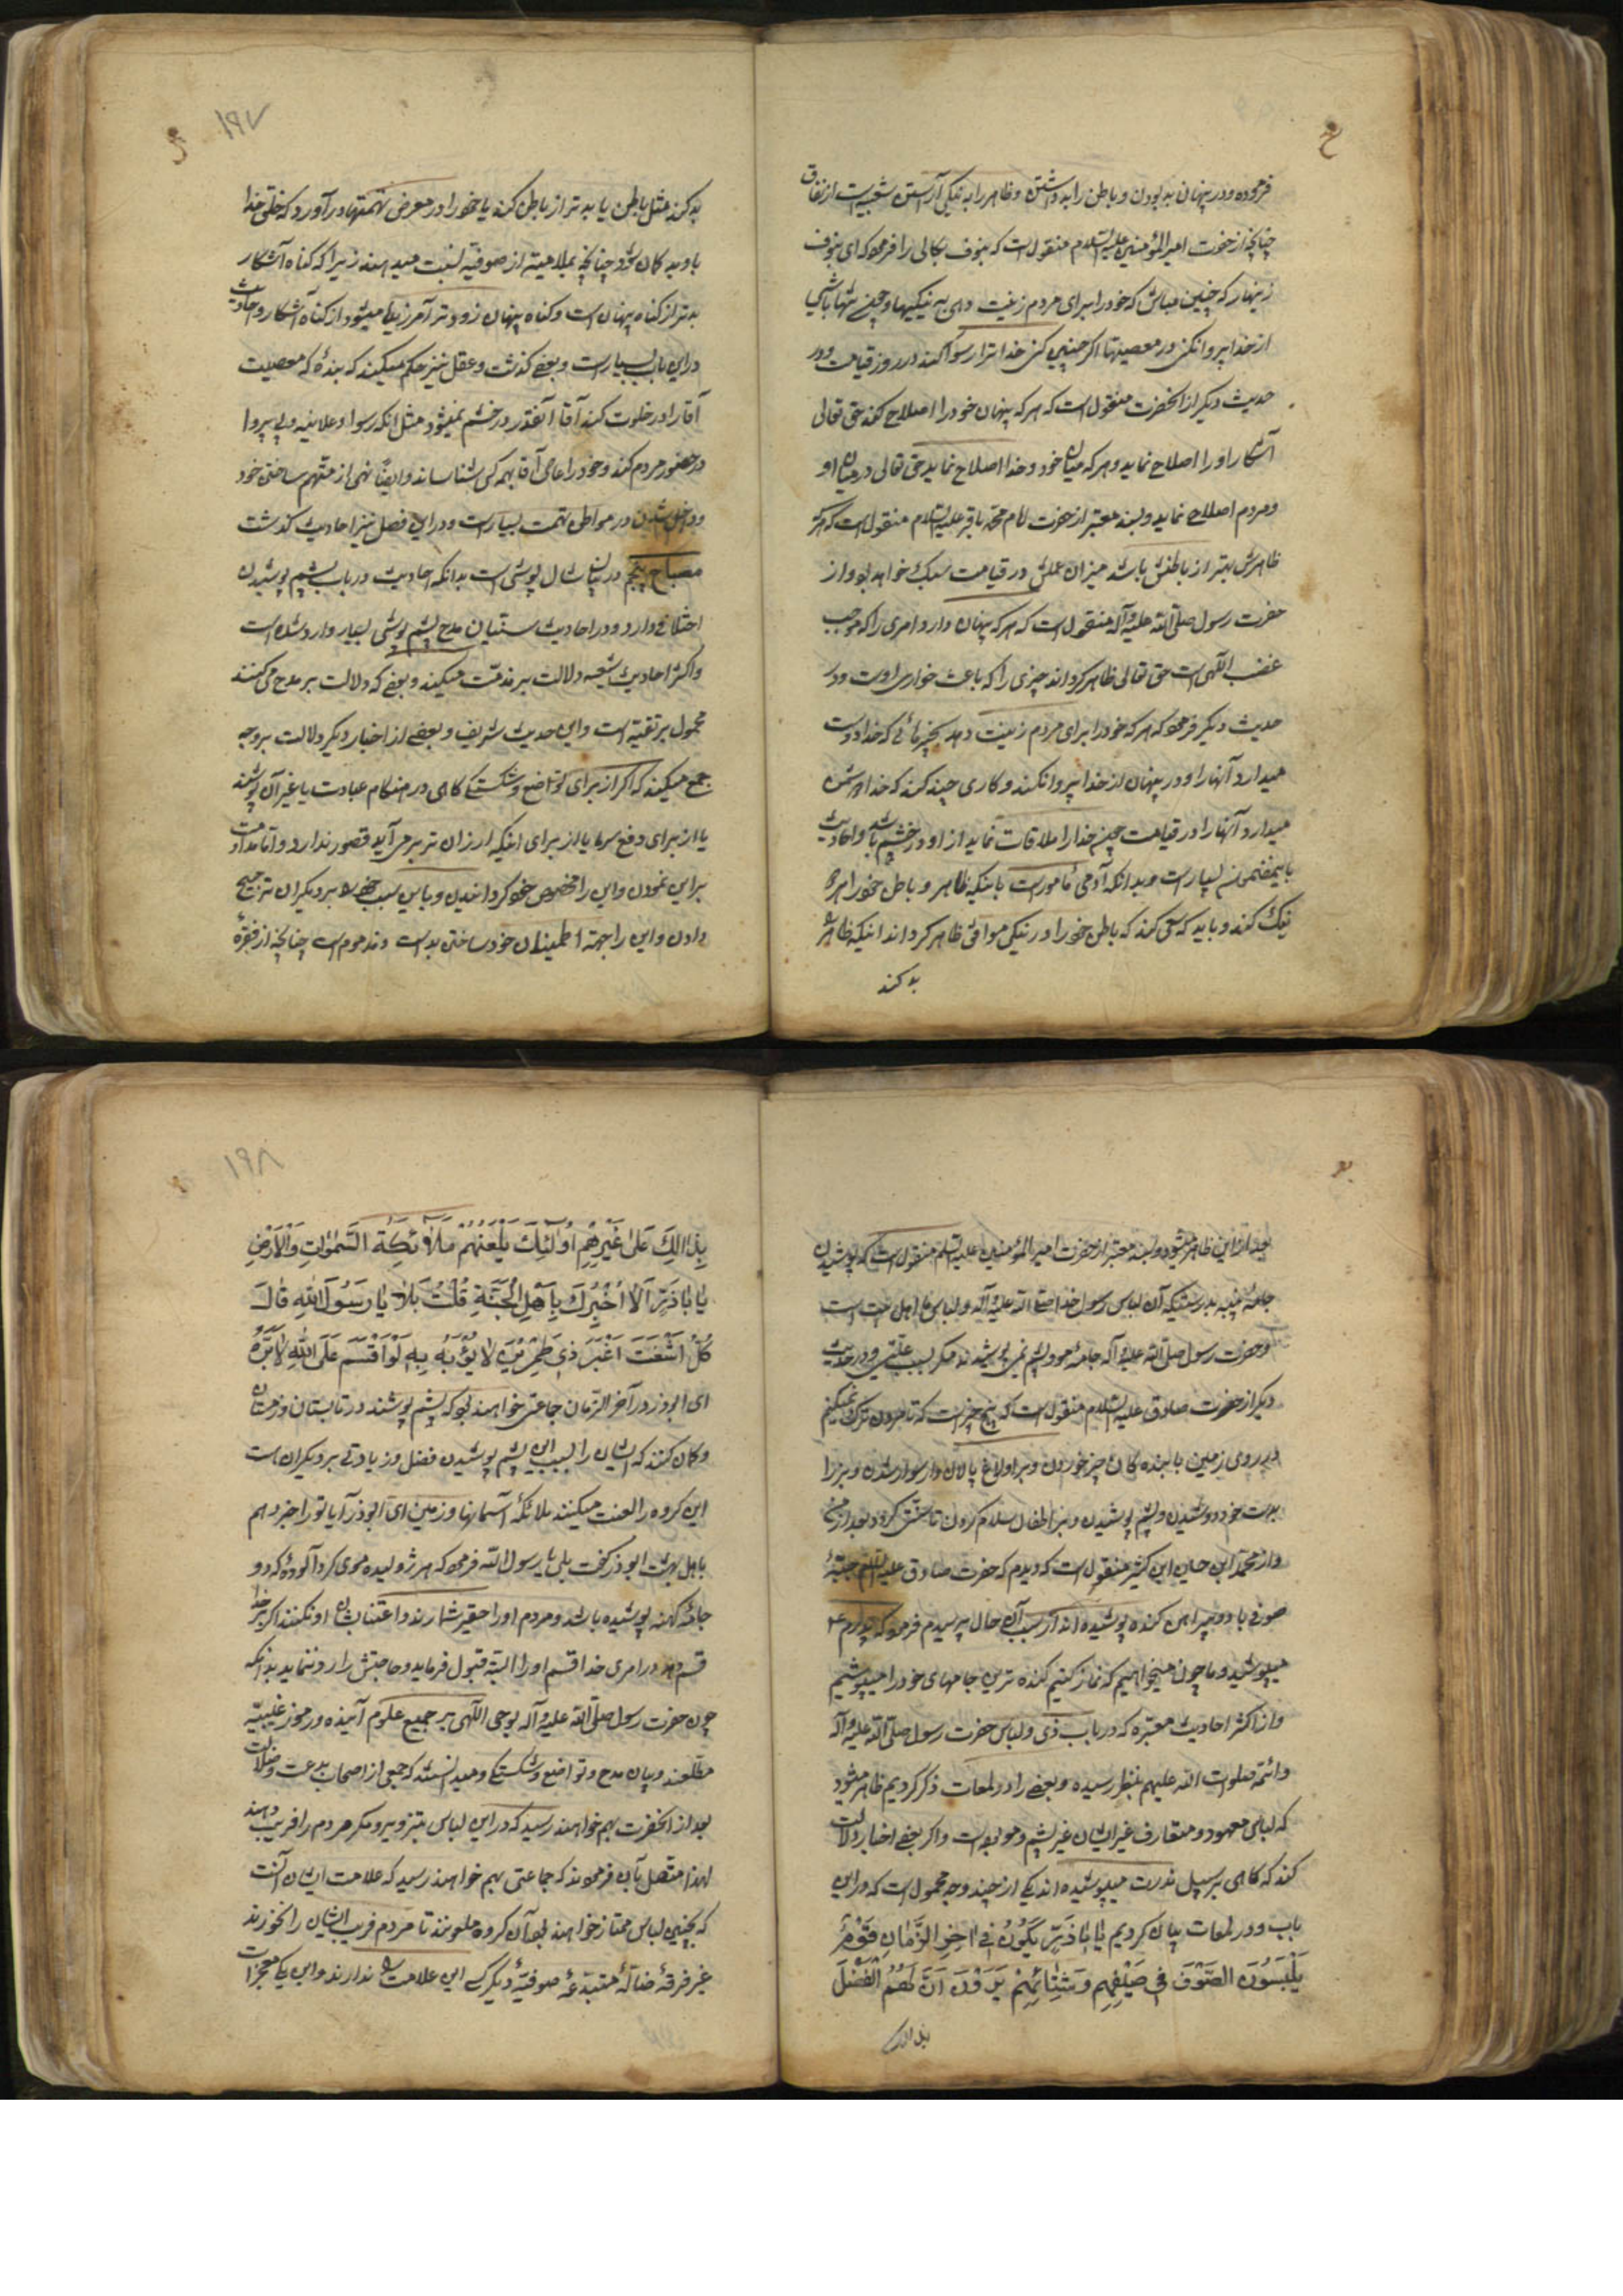 فرموده و در پنهان بد بودن و باطن را بد داشتن و ظاهر را به نیکی آراستن شعبه‌ایست از نفاق
چنانچه از حضرت امیر المؤمنین علیه السلام منقول است که بنوف بکالی را فرمود که ای نوف
زینهار که چنین مباش که خود را برای مردم زینت دهی به نیکیها و چون تنها باشی
از خدا پروا نکنی در معصیتها اگر چنین کنی خدا ترا رسوا کند در روز قیامت و در
حدیث دیگر از آنحضرت منقول است که هر که پنهان خود را اصلاح کند حق تعالی
آشکار او را اصلاح نماید و هر که میان خود و خدا اصلاح نماید حق تعالی در میان او
و مردم اصلاح نماید و بسند معتبر از حضرت امام محمد باقر علیه السلام منقول است که هر که
ظاهرش بهتر از باطنش باشد میزان عملش در قیامت سبک خواهد بود و از
حضرت رسول صلی الله علیه وآله منقول است که هر که پنهان دارد امری را که موجب
غضب الهی است حق تعالی ظاهر گرداند چیزی را که باعث خواری اوست و در
حدیث دیگر فرمود که هر که خود را برای مردم زینت دهد بچیزهائی که خدا دوست
میدارد آنها را و در پنهان از خدا پروا نکند و کاری چند کند که خدا دشمن
میدارد آنها را در قیامت چون خدا را ملاقات نماید از او در خشم باشد و احادیث
باین مضمون بسیار است و بدانکه آدمی مأمور است باینکه ظاهر و باطن خود را هر دو
نیک کند و باید که سعی کند که باطن خود را در نیکی موافق ظاهر گرداند نه اینکه ظاهر را
بد کند
۱۹۷
بد کند مثل باطن یا بدتر از باطن کند یا خود را در معرض تهمتها در آورد که خلق خدا
باو بد گمان شود چنانچه بملامتیه از صوفیه نسبت میدهند زیرا که گناه آشکار
بدتر از گناه پنهان است و گناه پنهان زودتر آمرزیده میشود از گناه آشکار و احادیث
در این باب بسیار است و بعضی گذشت و عقل نیز حکم میکند که بنده که معصیت
آقا را در خلوت کند آقا آنقدر در خشم نمیشود مثل آنکه رسوا و علانیه و بی پروا
در حضور مردم کند و خود را عاصی آقا بهمه کس بشناساند و ایضاً نهی از متهم ساختن خود
و داخل شدن در مواطن تهمت بسیار است و در این فصل نیز احادیث گذشت
مصباح پنجم در بیان شال پوشی است بدانکه احادیث در باب پشم پوشیدن
اختلافی دارد و در احادیث سنیان مدح پشم پوشی بسیار وارد شده است
و اکثر احادیث شیعه دلالت بر مذمت میکند و بعضی که دلالت بر مدح می کنند
محمول بر تقیه است و این حدیث شریف و بعضی از اخبار دیگر دلالت بر وجه
جمع میکند که اگر از برای تواضع و شکستگی گاهی در هنگام عبادت یا غیر آن پوشند
یا از برای دفع سرما یا از برای اینکه ارزان تر بر می آید قصور ندارد و اما مداومت
بر این نمودن و این را مخصوص خود گردانیدن و باین سبب خود را بر دیگران ترجیح
دادن و این را جهته اطمینان خود ساختن بد است و مذموم است چنانچه از فقره
بعد از این ظاهر میشود و بسند معتبر از حضرت امیر المؤمنین علیه السلام منقول است که بپوشید
جامهٔ پنبه بدرستیکه آن لباس رسول خدا صلی الله علیه وآله و لباس ما اهل بیت است
و حضرت رسول صلی الله علیه وآله جامه مو و پشم نمی پوشیدند مگر بسبب علتی و در حدیث
دیگر از حضرت صادق علیه السلام منقول است که پنج چیز است که تا مردن ترک نمیکنم
بر روی زمین با بنده گان چیز خوردن و بر اولاغ پالان دار سوار شدن و بز را
بدست خود دوشیدن و پشم پوشیدن و بر اطفال سلام کردن تا سنتی گردد بعد از من
و از محمد ابن حسین ابن کثیر منقول است که دیدم که حضرت صادق علیه السلام جبهٔ
صوفی با دو پیراهن گنده پوشیده اند از سبب آن حال پرسیدم فرمود که پدرم
میپوشید و ما چون میخواهیم که نماز کنیم گنده ترین جامهای خود را میپوشیم
و از اکثر احادیث معتبره که در باب زی و لباس حضرت رسول صلی الله علیه وآله
و ائمه صلوات الله علیهم بنظر رسیده و بعضی را در لمعات ذکر کردیم ظاهر میشود
که لباس معهود و متعارف غیر ایشان غیر پشم و مو بوده است و اگر بعضی اخبار دلالت
کند که گاهی بر سبیل ندرت میپوشیده اند یکی از چند وجه محمول است که در این
باب و در لمعات بیان کردیم یٰا اَبٰا ذَرٍّ یَکُونُ فی اٰخِرِ الزَّمٰانِ قَوْمٌ
یَلْبَسُونَ الصُّوفَ فی صَیْفِهِمْ وَشِتٰائِهِمْ یَرَوْنَ اَنَّ لَهُمُ الْفَضْلَ
بذالک
۱۹۸
بِذٰلِکَ عَلیٰ غَیْرِهِمْ اُولٰئِکَ یَلْعَنُهُمْ مَلاٰئِکَةُ السَّمٰوٰاتِ وَالْاَرْضِ
یٰا اَبٰا ذَرٍّ اَلٰا اُخْبِرُکَ بِاَهْلِ الْجَنَّةِ قُلْتُ بَلیٰ یٰا رَسُولَ اللّٰهِ قٰالَ
کُلُّ اَشْعَثَ اَغْبَرَ ذی طِمْرَیْنِ لٰا یُؤْبَهُ بِهِ لَوْ اَقْسَمَ عَلَی اللّٰهِ لَاَبَرَّهُ
ای ابوذر در آخر الزمان جماعتی خواهند بود که پشم پوشند در تابستان و زمستان
و گمان کنند که ایشان را بسبب این پشم پوشیدن فضل و زیادتی بر دیگران است
این گروه را لعنت میکنند ملائکهٔ آسمانها و زمین ای ابوذر آیا تو را خبر دهم
باهل بهشت ابوذر گفت بلی یا رسول الله فرمود که هر ژولیده موی گرد آلودهٔ که دو
جامهٔ کهنه پوشیده باشد و مردم او را حقیر شمارند و اعتنا بشان او نکنند اگر بر خدا
قسم دهد در امری خدا قسم او را البته قبول فرماید و حاجتش را رد ننماید بدانکه
چون حضرت رسول صلی الله علیه وآله بوحی الهی بر جمیع علوم آینده و رموز غیبیه
مطلعند و بیان مدح و تواضع و شکستگی و میدانستند که جمعی از اصحاب بدعت و ضلالت
بعد از آنحضرت بهم خواهند رسید که در این لباس بتزویر و مکر مردم را فریب دهند
لهذا متصل بآن فرمودند که جماعتی بهم خواهند رسید که علامت ایشان آنست
که بچنین لباس ممتاز خواهند بود آن گروه ملعونند تا مردم فریب ایشان را نخورند
غیر فرقهٔ ضالهٔ مبتدعهٔ صوفیه دیگر کسی این علامت را ندارند و این یکی معجزات